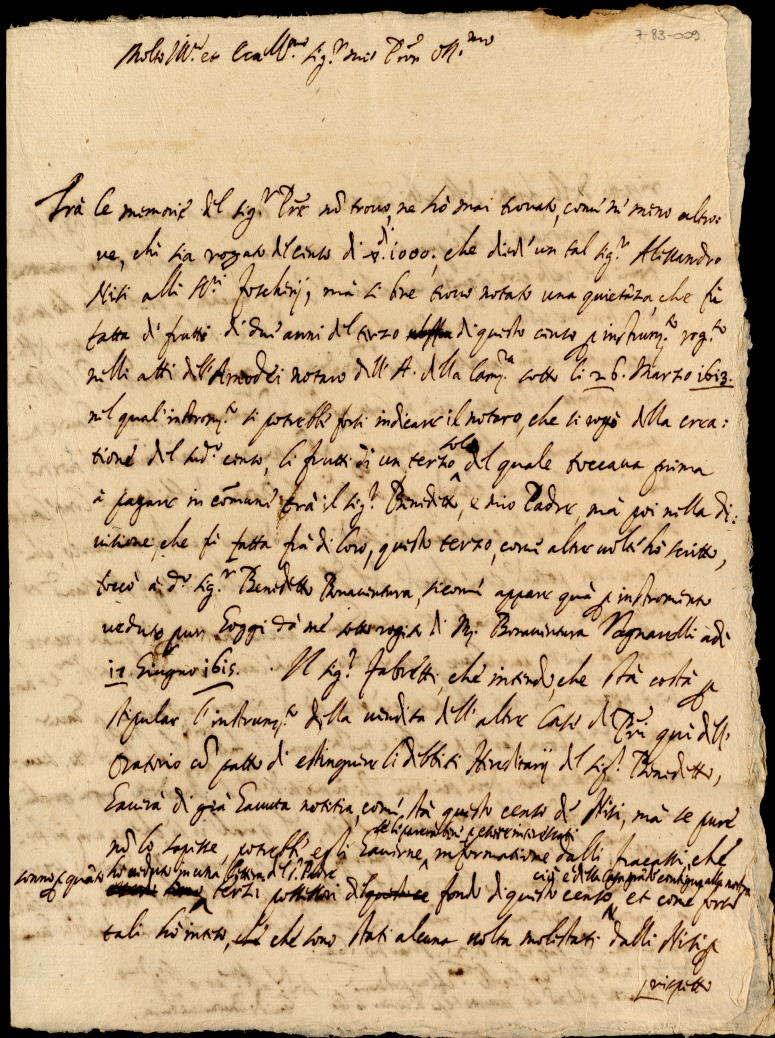 7-83-009
Molto Ill.re et Ecc.mo sig.r mio Pron oss.mo
Frà le memorie del sig.r Pre nõ trovo, ne hò mai trovato, come ne meno altro=
ve, chi sia rogato del censo di s.di 1000: che diede un tal sig.r Alessandro
Nisi alli ss.ri Foschini, mà si bne trovo notato una quietãza, che fù
fatta di frutti di due anni del terzo di questo censo p instrum.to rog.to
nelli atti dell'Amodei notaro dell'A. della Cam.ra sotto li 26. Marzo 1613.
nel qual'instrom.to si potrebbe forsi indicare il notaro, che si rogò della crea=
tione del sud.o censo, li frutti di un terzo solo del quale toccava prima
à pagare in cõmune frà il sig.r Benedetto, e mio Padre mà poi nella di=
visione, che fù fatta frà di loro, questo terzo, come altre volte hò scritto,
toccò à d.o sig.r Benedetto Bonaventura, sicome appare quà p instromento
veduto pur hoggi da me sotto rogito di Bonaventura Vagnarelli adì
12 Giugno 1615. Il sig.r Fabretti, che intendo, che stà costà p
stipular l'instrum.to della vendita dell'altre Case de Pri qui dell'
Oratorio cõ patto di estinguere li debbiti Hereditarij del sig.r Benedetto,
haverà di già havuta notitia, come stà questo censo de Nisi, mà se pure
nõ lo sapesse, potrebbe egli haverne informatione dalli fracassi, che
se li p esser interessati
sonno p quãto hò veduto in una lettera del s.r Padre terzi possessori del fondo di questo censo, et come forse
cioè della contigua alla nostra
tali hò inteso, che sono stati alcuna volta molestati dalli Nisi p
rispetto